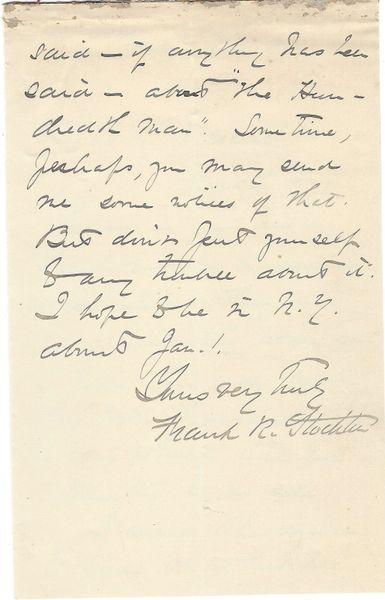 said – if anything has been
said – about "The Hun-
dredth Man". Some time,
perhaps, you may send
me some notices of that.
But don't put yourself
to any trouble about it.
I hope to be in N.Y.
about Jan. 1.
Yours very truly
Frank R. Stockton